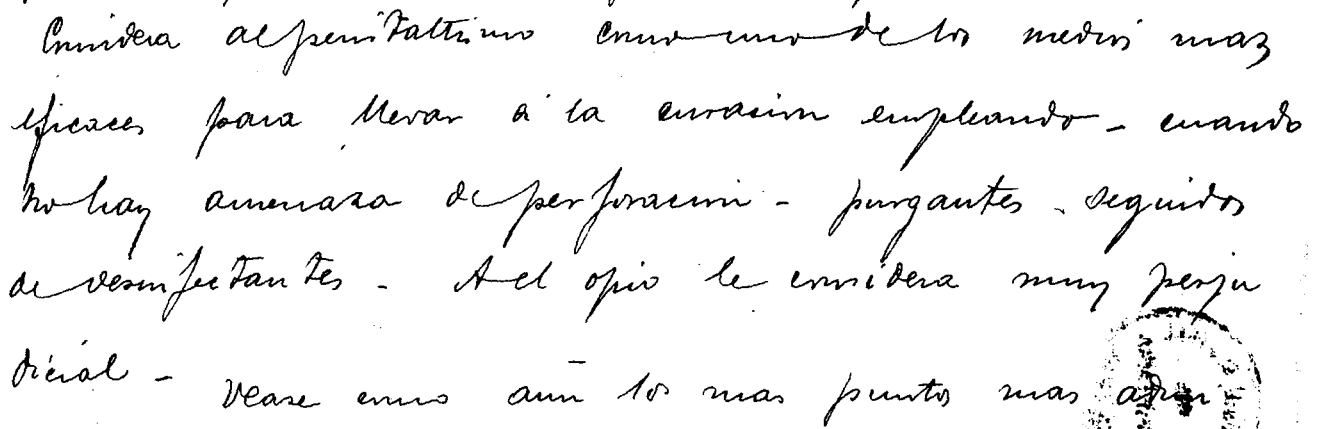 Considera al peristaltismo como uno de los medios mas
eficaces para llevar á la curacion empleando - cuando
no hay amenaza de perforacion - purgantes - seguidos
de desinfectantes - Al opio le considera muy perju
dicial - Vease como aun los mas puntos mas